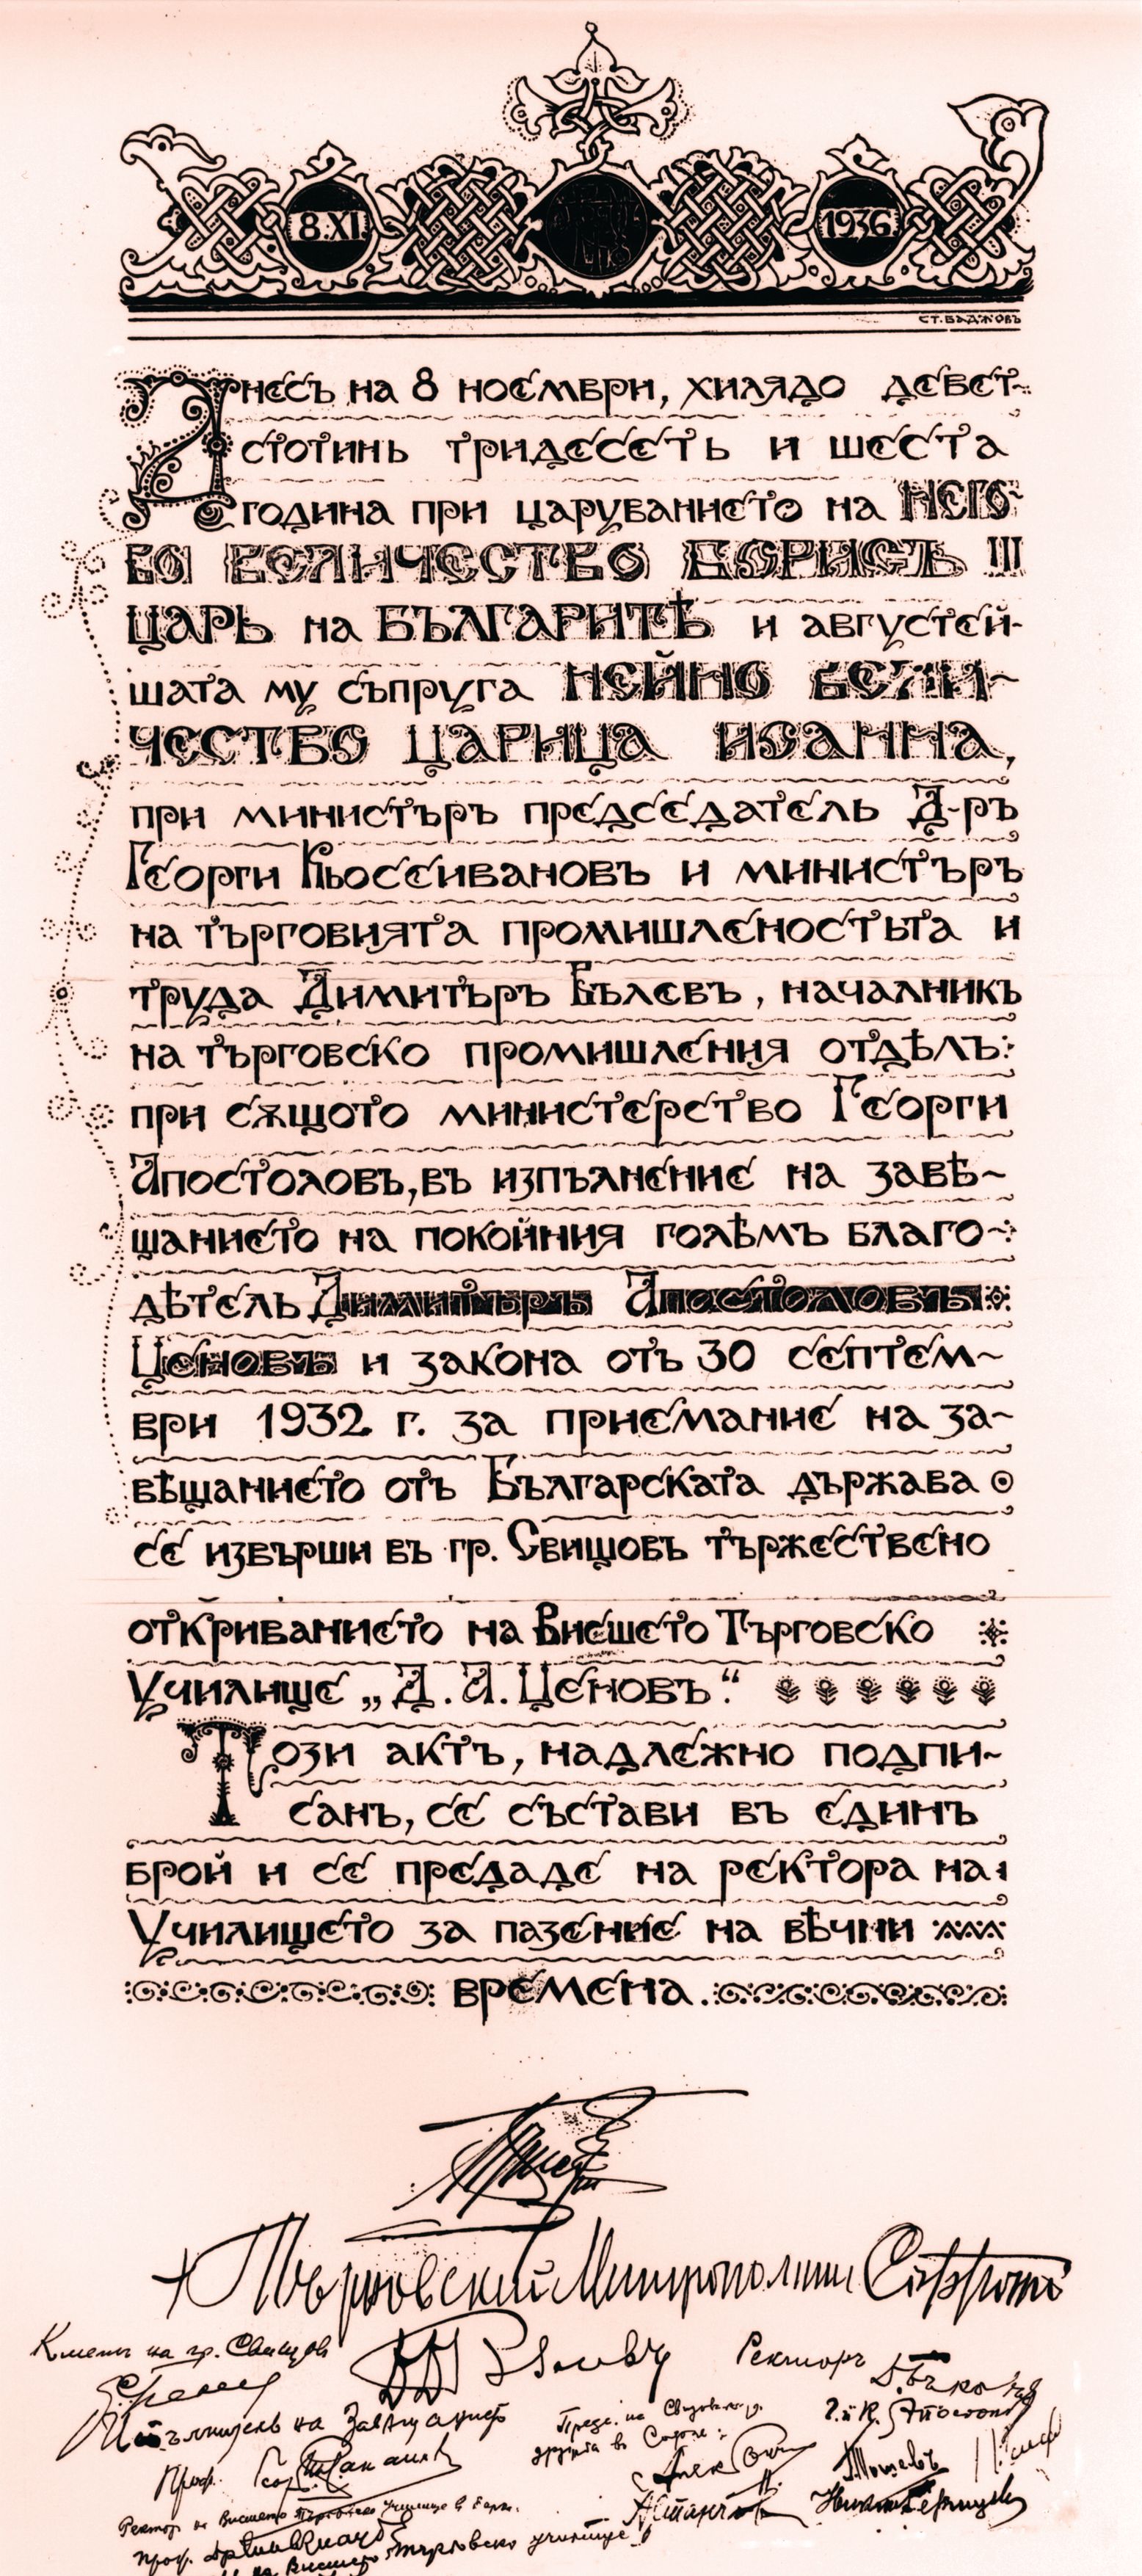 8.XI.
1936.
СТ. БАДЖОВЪ
Днесъ на 8 ноември, хилядо девет-
стотинъ тридесетъ и шеста
година при царуванието на НЕГО-
ВО ВЕЛИЧЕСТВО БОРИСЪ III
ЦАРЬ на БЪЛГАРИТѢ и августей-
шата му съпруга НЕЙНО ВЕЛИ~
ЧЕСТВО ЦАРИЦА ИОАННА,
при министъръ председатель Д-ръ
Георги Кьосеивановъ и министъръ
на търговията промишленостьта и
труда Димитъръ Вълевъ, началникъ
на търговско промишления отдѣлъ:
при сѫщото министерство Георги
Апостоловъ, въ изпълнение на завѣ~
щанието на покойния голѣмъ благо~
дѣтель Димитъръ Апостоловъ
Ценовъ и закона отъ 30 септем~
ври 1932 г. за приемание на за~
вѣщанието отъ Българската държава
се извърши въ гр. Свищовъ тържествено
откриванието на Висшето Търговско
Училище „Д. А. Ценовъ.“
Този актъ, надлежно подпи~
санъ, се състави въ единъ
брой и се предаде на ректора на
Училището за пазение на вѣчни
времена.
+ Търновский Митрополитъ Софроний
Кметъ на гр. Свищовъ
Ректоръ
Изпълнитель на Завещанието
Предс. на Свищовска
дружба в София:
Проф.
Ректор на Висшето Търговско Училище в Варна.
проф.
на Висшето Търговско училище